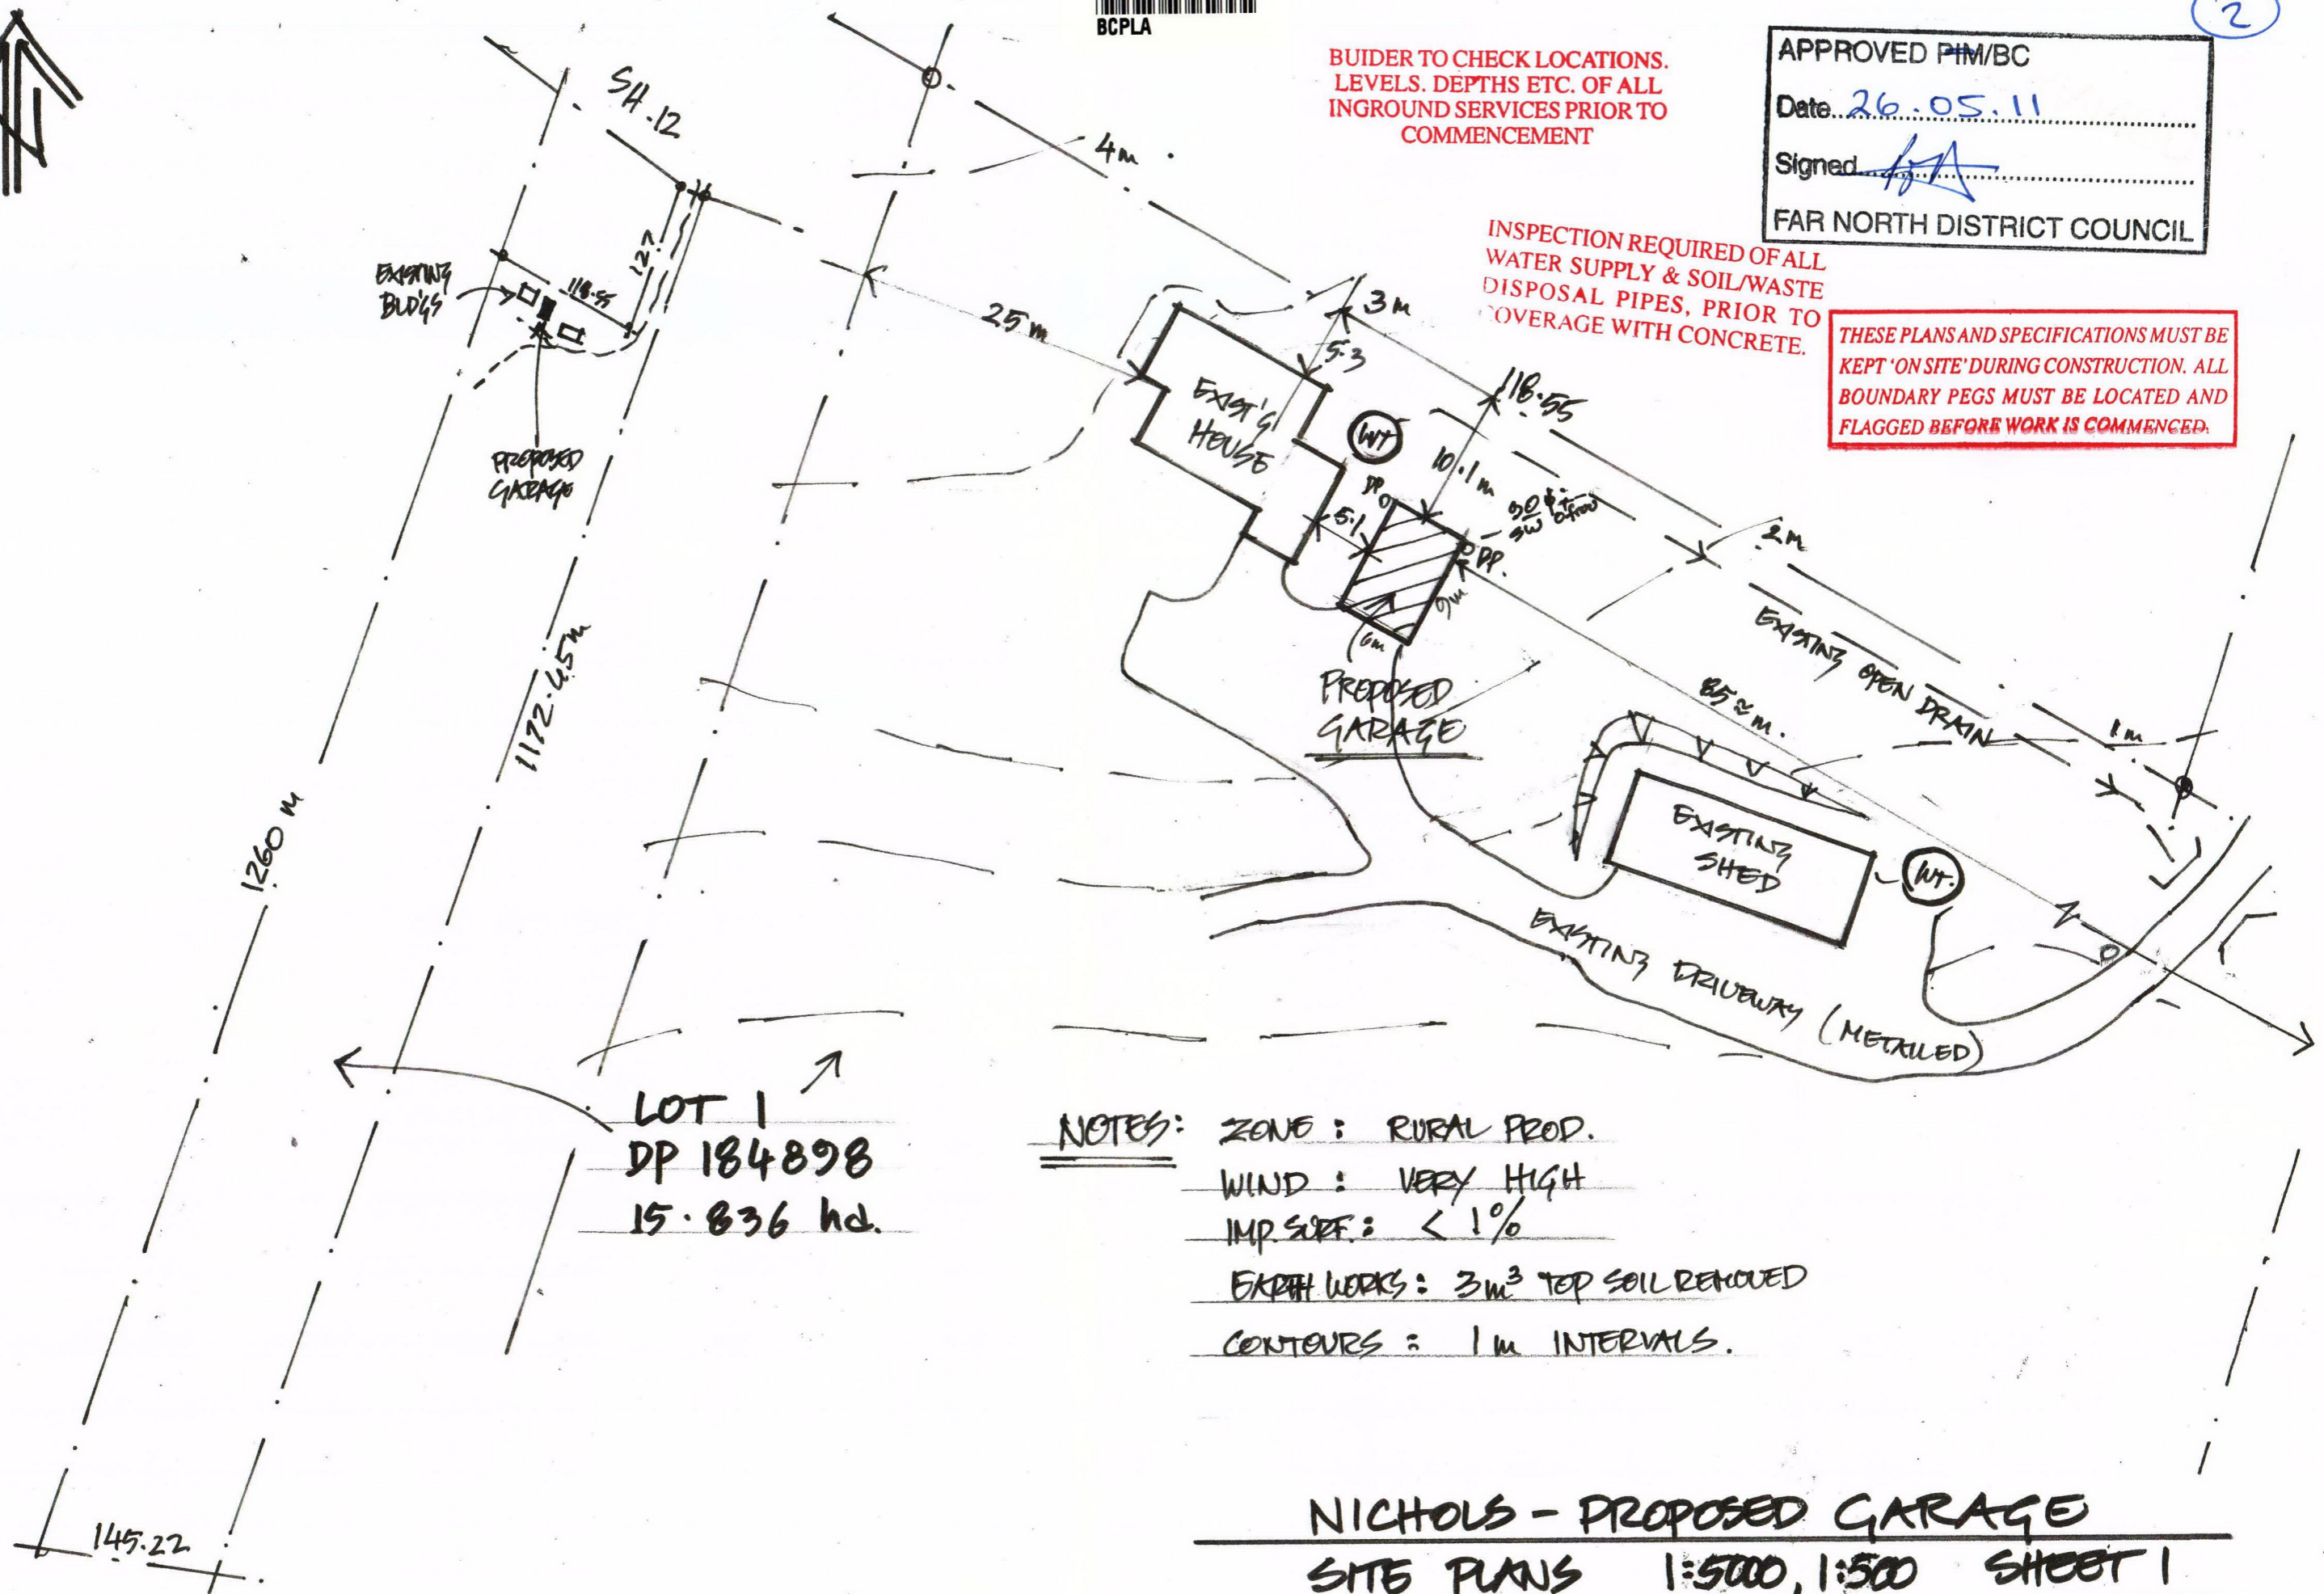 BCPLA
2
BUIDER TO CHECK LOCATIONS.
LEVELS. DEPTHS ETC. OF ALL
INGROUND SERVICES PRIOR TO
COMMENCEMENT
APPROVED PIM/BC
Date 26.05.11
Signed
FAR NORTH DISTRICT COUNCIL
INSPECTION REQUIRED OF ALL
WATER SUPPLY & SOIL/WASTE
DISPOSAL PIPES, PRIOR TO
COVERAGE WITH CONCRETE.
THESE PLANS AND SPECIFICATIONS MUST BE
KEPT 'ON SITE' DURING CONSTRUCTION. ALL
BOUNDARY PEGS MUST BE LOCATED AND
FLAGGED BEFORE WORK IS COMMENCED.
N
SH.12
127
118.55
EXISTING
BLD'GS
PROPOSED
GARAGE
4m
25m
3m
5.3
118.55
EXIST'G
HOUSE
WT
10.1m
DP
5.1
90 φ
SW
DP.
9m
6m
2m
PROPOSED
GARAGE
EXISTING OPEN DRAIN
85≈m.
1m
EXISTING
SHED
WT.
EXISTING DRIVEWAY (METALLED)
1260m
1172.45m
145.22
LOT 1
DP 184898
15.836 ha.
NOTES:
ZONE: RURAL PROD.
WIND: VERY HIGH
IMP. SURF.: < 1%
EARTH WORKS: 3m³ TOP SOIL REMOVED
CONTOURS: 1m INTERVALS.
NICHOLS - PROPOSED GARAGE
SITE PLANS 1:5000, 1:500 SHEET 1